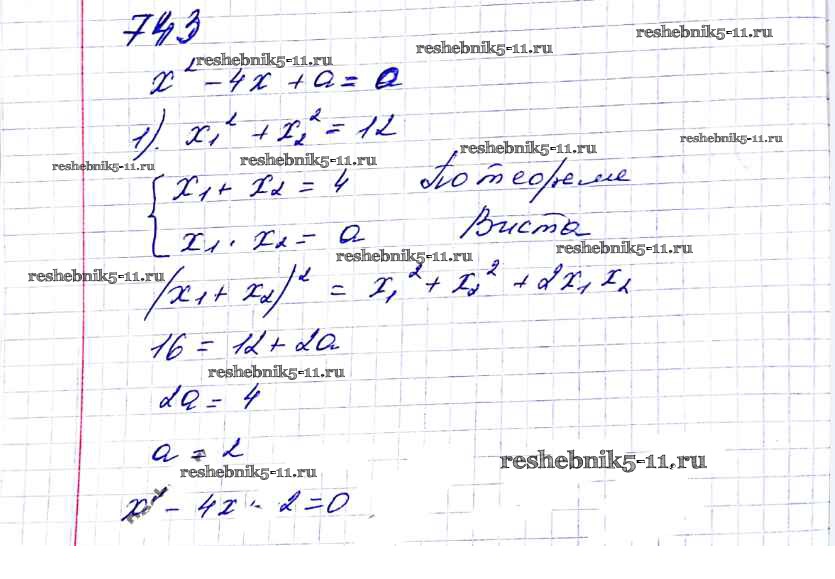 743
reshebnik5-11.ru
reshebnik5-11.ru
reshebnik5-11.ru
x² - 4x + a = a
1). x₁² + x₂² = 12
reshebnik5-11.ru
reshebnik5-11.ru
reshebnik5-11.ru
reshebnik5-11.ru
x₁ + x₂ = 4 По теореме
x₁ · x₂ = a Виета
reshebnik5-11.ru
reshebnik5-11.ru
reshebnik5-11.ru
(x₁ + x₂)² = x₁² + x₂² + 2x₁ x₂
16 = 12 + 2a
reshebnik5-11.ru
2a = 4
a = 2
reshebnik5-11.ru
reshebnik5-11.ru
x² - 4x - 2 = 0